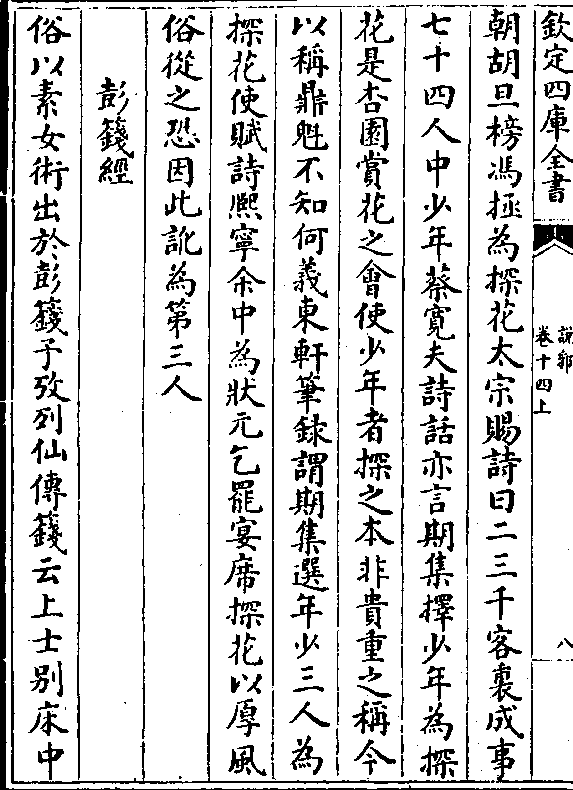 欽定四庫全書
說郛
卷十四上
八
朝胡旦榜馮拯為探花太宗賜詩曰二三千客裏成事
七十四人中少年蔡寛夫詩話亦言期集擇少年為探
花是杏園賞花之會使少年者探之本非貴重之稱今
以稱鼎魁不知何義東軒筆録謂期集選年少三人為
探花使賦詩熈寧余中為狀元乞罷宴席探花以厚風
俗從之恐因此訛為第三人
彭籛經
俗以素女術出於彭籛予攷列仙傳籛云上士别床中